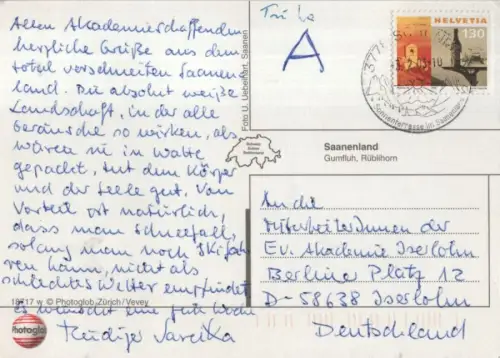 Allen Akademieschaffenden
herzliche Grüße aus dem
total verschneiten Saanen-
land. Die absolut weiße
Landschaft, in der alle
Geräusche so wirken, als
wären sie in Watte
gepackt, tut dem Körper
und der Seele gut. Von
Vorteil ist natürlich,
dass man Schneefall,
solang man noch Skifah-
ren kann, nicht als
schlechtes Wetter empfindet
Es wünscht eine gute Woche
Rüdiger
18717 w © Photoglob, Zürich / Vevey
Photoglob
Foto U. Uebelhart, Saanen
A
HELVETIA
130
Sonnenterrasse im Saanenland
Saanenland
Gumfluh, Rüblihorn
An die
MitarbeiterInnen der
Ev. Akademie Iserlohn
Berliner Platz 12
D-58638 Iserlohn
Deutschland